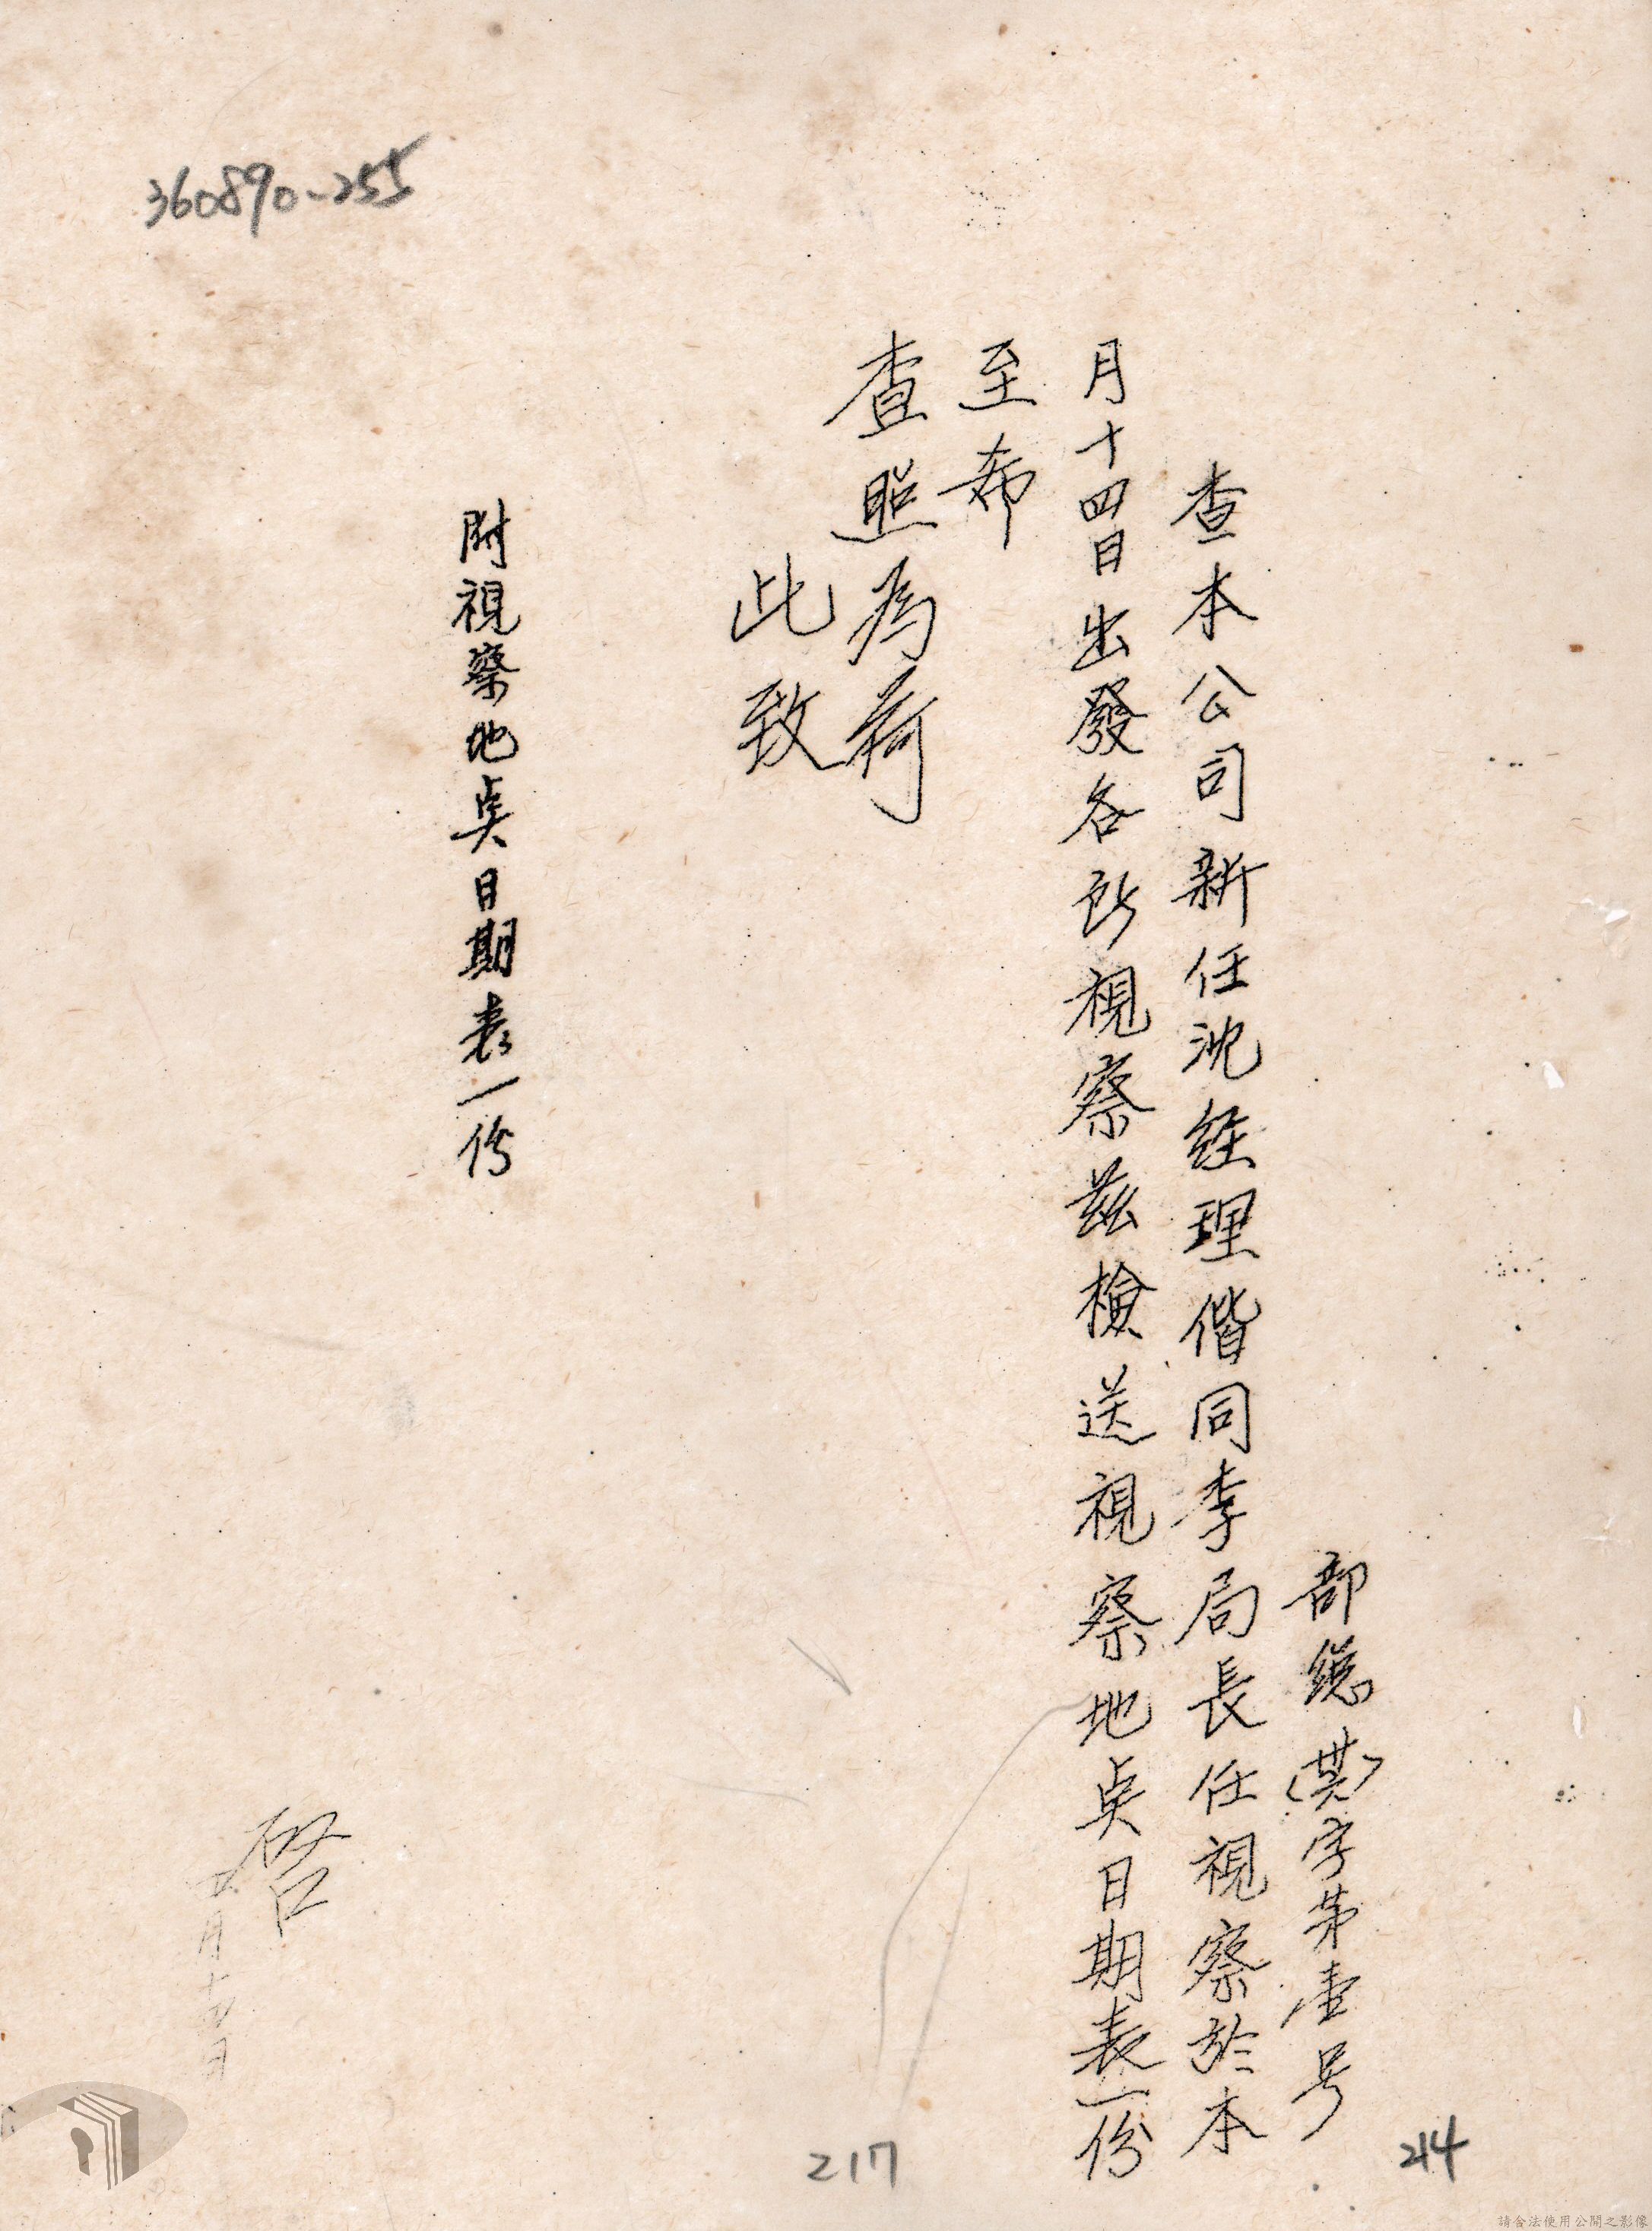 360890-255
部總(卅六)字第壹号
查本公司新任沈経理偕同李局長任視察於本
月十四日出發各所視察茲檢送視察地臭日期表一份
至希
查照為荷
此致
附視察地臭日期表一份
啓
月十四日
217
214
請合法使用公開之影像